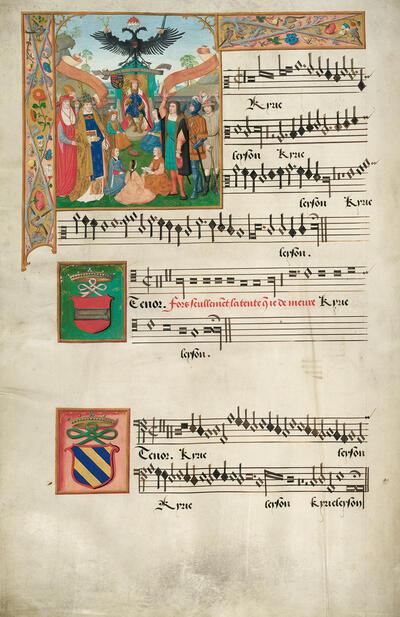 Kyrie
leyson Kyrie
leyson Kyrie
leyson.
Tenor. Fors seullement latente q̃ ie de meure Kyrie
leyson.
Tenor. Kyrie leyson
Kyrie leyson kyrieleyson